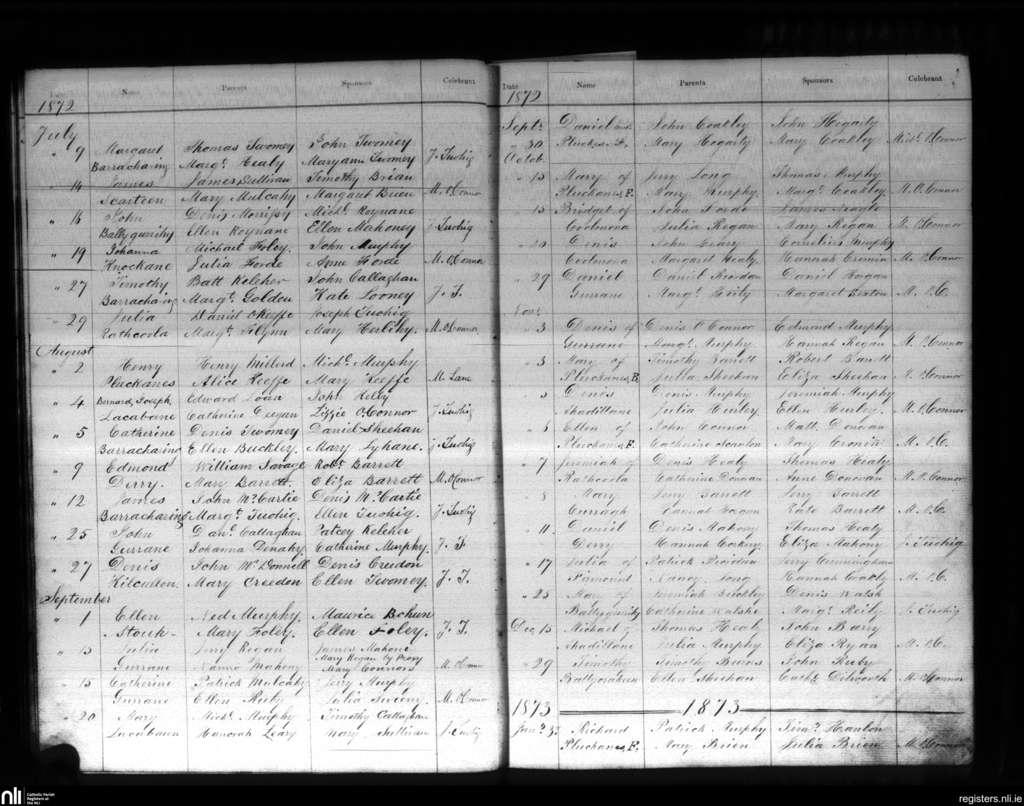 Date Name Parents Sponsors Celebrant
1872
July
" 9 Margaret Thomas Twomey John Twomey
Barracharing Margt. Healy Maryann Twomey J. Twohig
" 14 James James Sullivan Timothy Brian
Scarteen Mary Mulcahy Margaret Brien M. O'Connor
" 16 John Denis Morrissy Michl. Roynane
Ballyguirihy Ellen Roynane Ellen Mahoney J Twohig
" 19 Johanna Michael Foley. John Murphy
Knockane Julia Forde Anne Forde M. O'Connor
" 27 Timothy Batt Keleher John Callaghan
Barracharing Margt. Golden Kate Looney J. T.
" 29 Julia Daniel O'Keeffe Joseph Twohig
Rathcoola Margt. Flynn Mary Herlihy M. O'Connor
August
" 2 Henry Henry Millerd Michl. Murphy
Pluckanes Alice Keeffe Mary Keeffe M. Lane
" 4 Bernard Joseph Edward John Kelly
Lacabane Catherine Creyan Lizzie O'Connor J. Twohig
" 5 Catherine Denis Twomey Daniel Sheehan
Barracharing Ellen Buckley. Mary Lyhane. J. Twohig
" 9 Edmond William Savage Robt. Barrett
Derry. Mary Barrett. Eliza Barrett M. O'Connor
" 12 James John McCartie Denis McCartie
Barracharing Margt. Twohig. Ellen Twohig. J. Twohig
" 25 John Danl. Callaghan Patcey Keleher
Gurrane Johanna Denahy Catherine Murphy. J. T
" 27 Denis John McDonnell Denis Creedon
Kilcullen. Mary Creedon Ellen Twomey. J. T.
September
" 1 Ellen Ned Murphy. Maurice
Stouk Mary Foley. Ellen Foley. J. T.
" 13 Julia Jerry Regan James Mahone
Mary Regan by Proxy
Gurrane Nanno Mahony Mary Connors M. O'Connor
" 15 Catherine Patrick Mulcahy Jerry Murphy
Gurrane Ellen Reily Julia M. O'Connor
" 20 Mary Michl. Murphy Timothy Callaghan
Hanorah Leary Mary Sullivan J. Twohig
Date Name Parents Sponsors Celebrant
1872
Septr. Daniel John Coakley John Hegarty
" 30 Pluckanes F. Mary Hegarty Mary Coakley Michl. O'Connor
Octob.
" 13 Mary of Jerry Long Thomas Murphy
Pluckanes F. Mary Murphy. Margt. Coakley. M. O'Connor
" 15 Bridget of John Forde James Neagle
Coolmona Julia Regan Mary Regan M. O'Connor
" 20 Denis John Leary Cornelius Murphy
Coolmona Margaret Healy Hannah Cronin M. O'Connor
" 29 Daniel Daniel Reordan Daniel Hogan
Gurrane Margt. Reily Margaret Sexton M. O'C.
Novr.
" 3 Denis of Denis O'Connor Edmond Murphy
Gurrane Margt. Murphy Hannah Regan M. O'Connor
" 3 Mary of Timothy Barrett Robert Barrett
Pluckanes, F. Julia Sheehan Eliza Sheehan M. O'Connor
" 5 Denis Denis Murphy Jeremiah Murphy
Shadillane Julia Hurley Ellen Hurley. M. O'Connor
" 5 Ellen of John Connor Matt. Donovan
Pluckanes F. Catherine Scanlon Mary Cronin M. O'C.
" 7 Jeremiah of Denis Healy Thomas Healy
Rathcoola Catherine Donovan Anne Donovan M. O'Connor
" 8 Mary Jerry Barrett Jerry Barrett
Curragh Hannah Kate Barrett M. O'C.
" 11 Daniel Denis Mahony Thomas Healy
Derry Hannah Eliza Mahony J. Twohig
" 17 Julia of Patrick Riordan Jerry Cunningham
Nancy Long Hannah Coakly M. O'C.
" 25 Mary of Jeremiah Buckley Denis Walsh
Catherine Walshe Margt. Reily J. Twohig
Dec 15 Michael of Thomas Healy John Barry
Shadillane Julia Murphy Eliza Ryan M. O'C.
" 29 Timothy Timothy John
Ellen Sheehan Cath. M. O'Connor
1873 1873
Jany. 3 Richard Patrick Murphy Hanlon
Pluckanes, F. Mary Brien Julia Brien M. O'Connor
nli Catholic Parish Registers at the NLI
registers.nli.ie